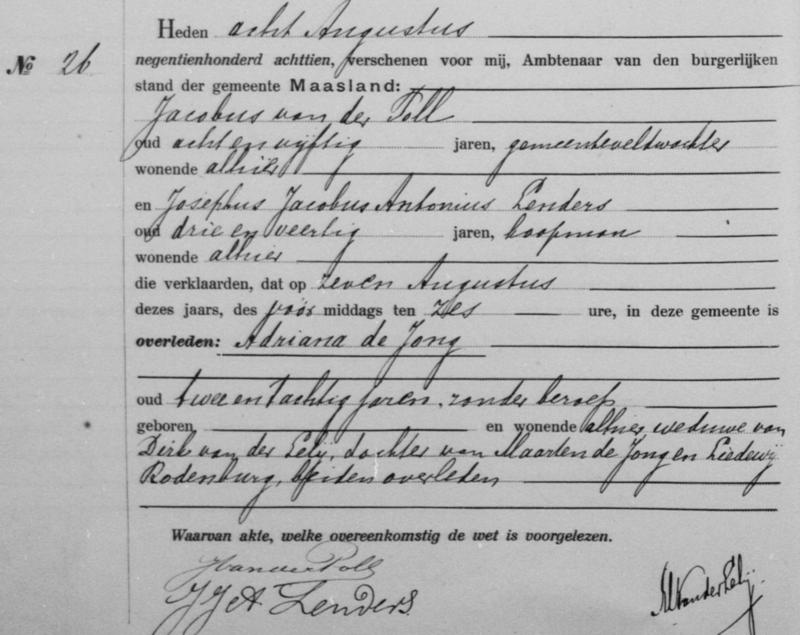 Heden acht Augustus
№ 26
negentienhonderd achttien, verschenen voor mij, Ambtenaar van den burgerlijken
stand der gemeente Maasland:
Jacobus van der Poll
oud acht en vijftig jaren, gemeenteveldwachter
wonende alhier
en Josephus Jacobus Antonius Lenders
oud drie en veertig jaren, koopman
wonende alhier
die verklaarden, dat op zeven Augustus
dezes jaars, des voor middags ten zes ure, in deze gemeente is
overleden: Adriana de Jong
oud twee en tachtig jaren, zonder beroep
geboren en wonende alhier, weduwe van
Dirk van der Lely, dochter van Maarten de Jong en Liedewij
Rodenburg, beiden overleden
Waarvan akte, welke overeenkomstig de wet is voorgelezen.
J van der Poll
J J A Lenders
van der Lely